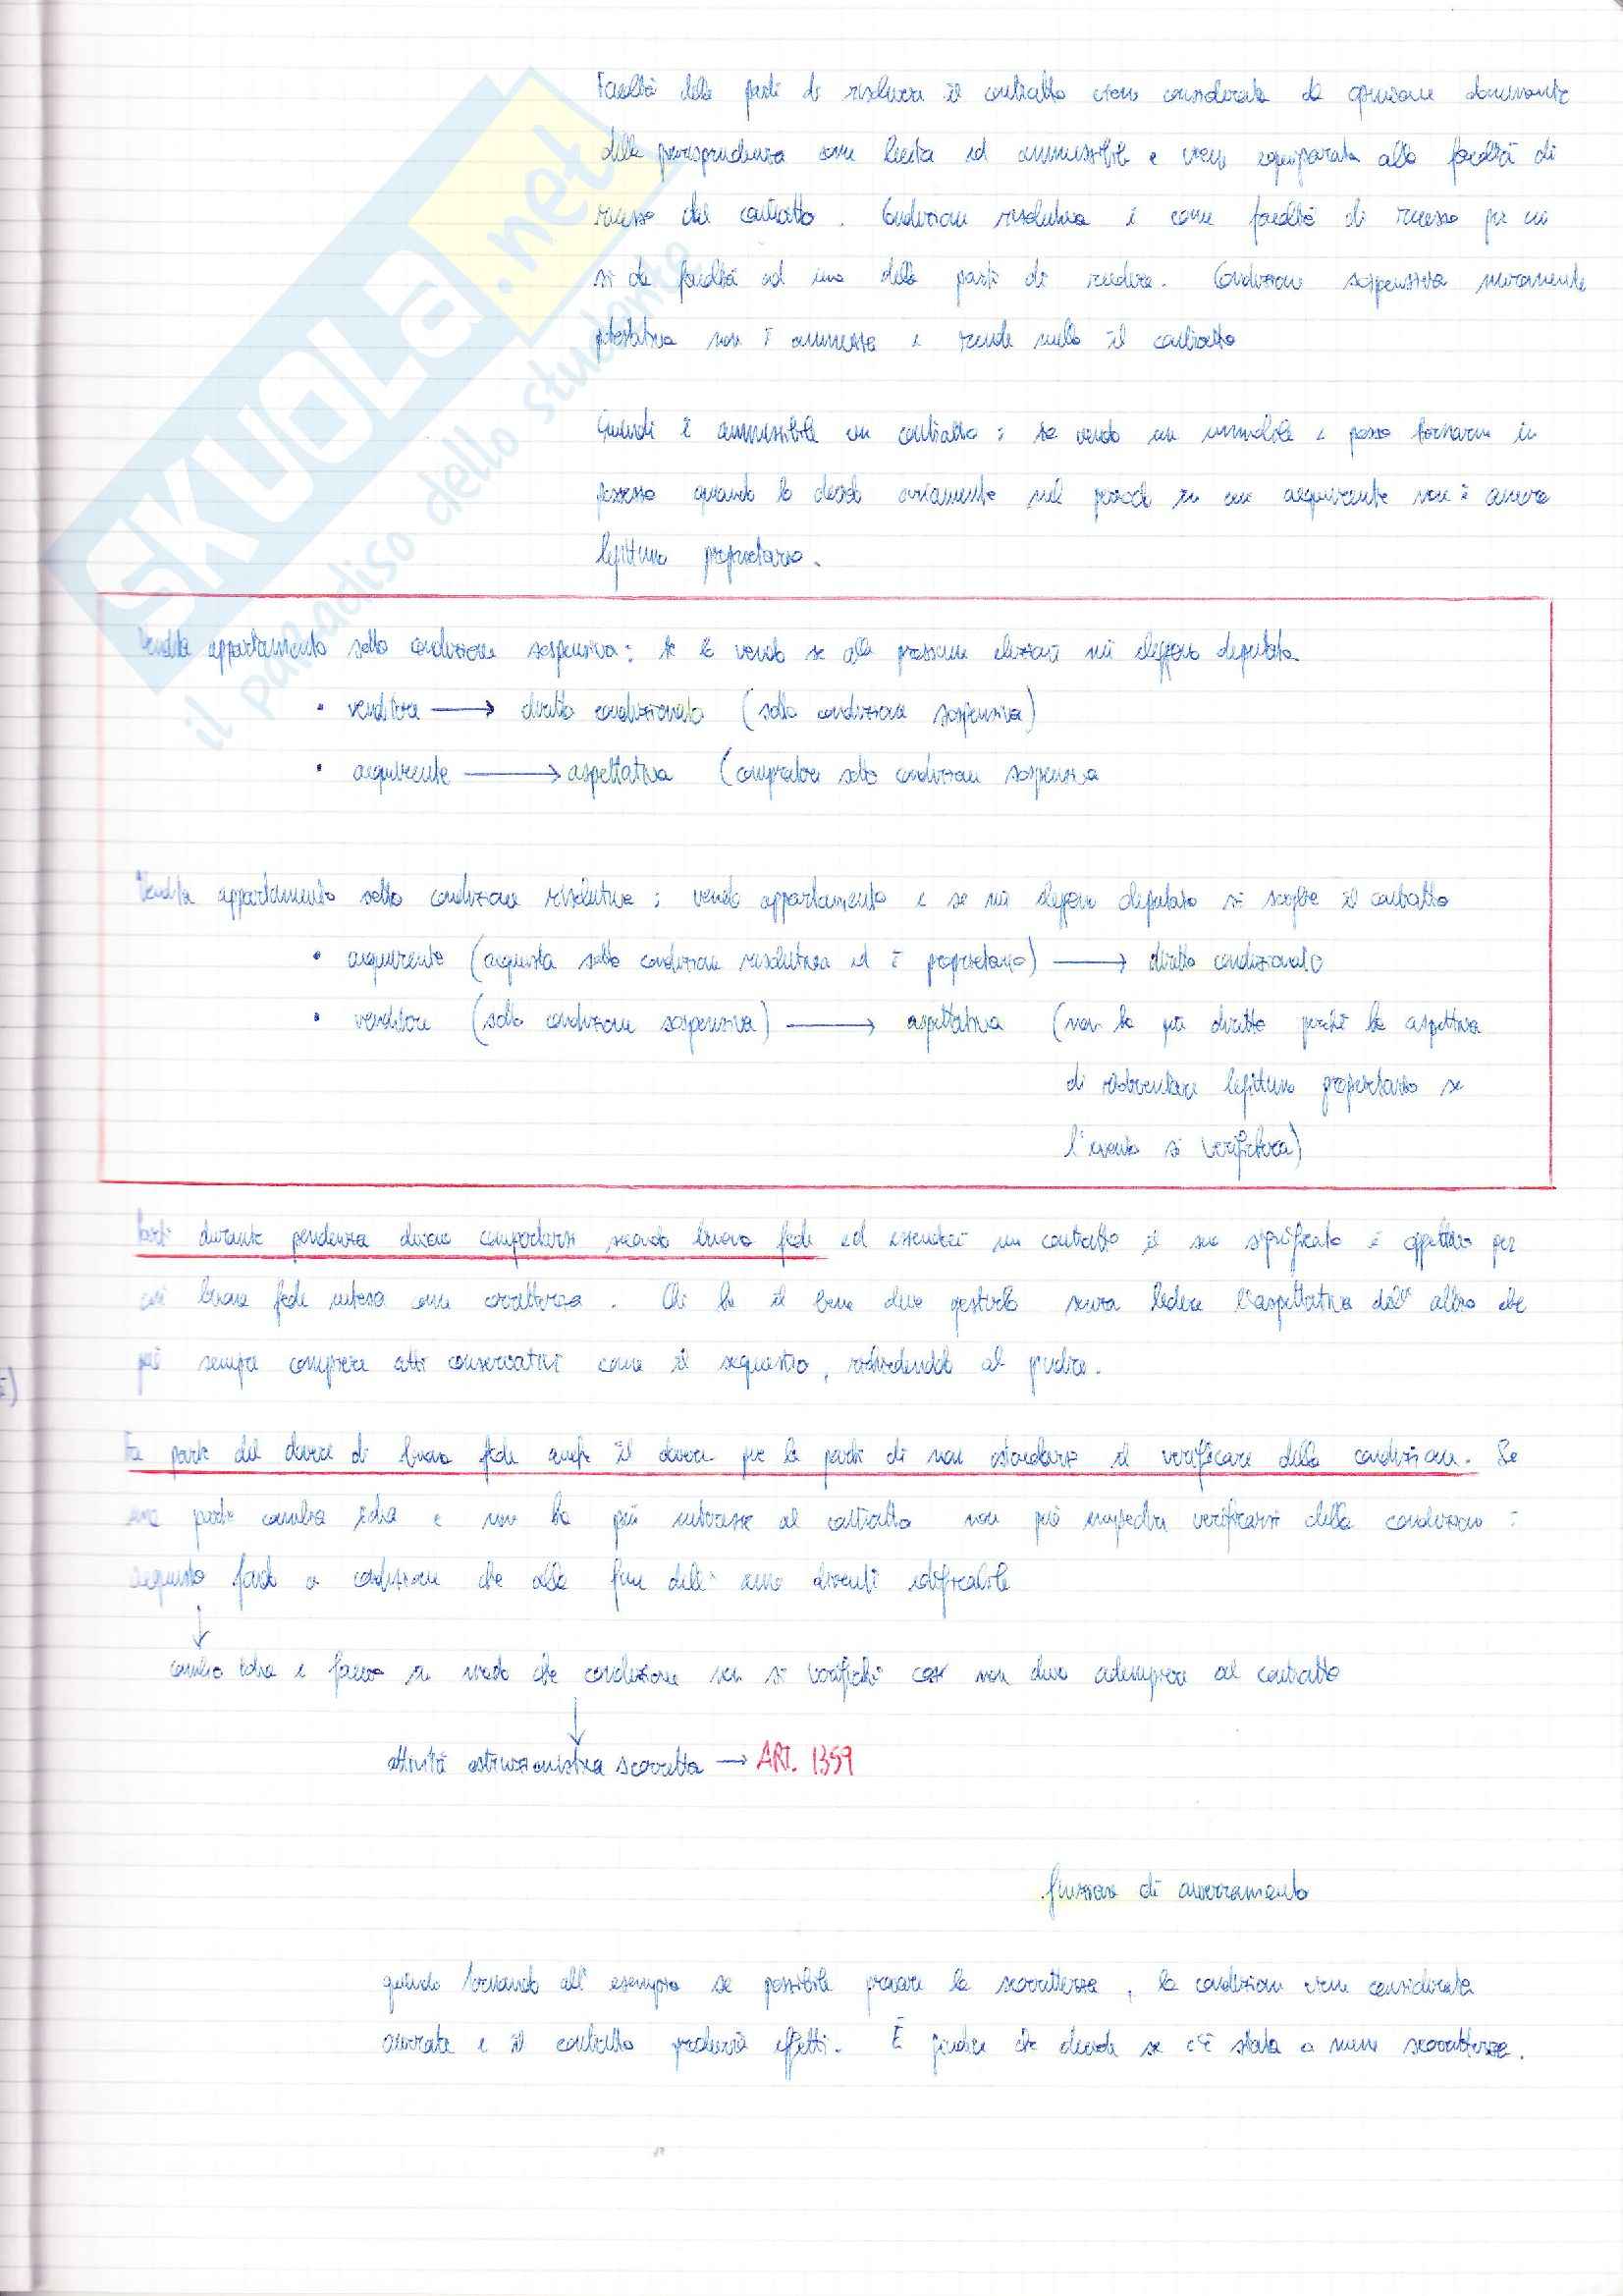 Facoltà delle parti di risolvere il contratto viene considerata da opinione dominante
della giurisprudenza come lecita ed ammissibile e viene equiparata alla facoltà di
recesso dal contratto. Condizione risolutiva è come facoltà di recesso per cui
si dà facoltà ad una delle parti di recedere. Condizione sospensiva meramente
potestativa non è ammessa e rende nullo il contratto
Quindi è ammissibile un contratto: se vendo un immobile e posso tornarne in
possesso quando lo decido ovviamente nel periodo in cui acquirente non è ancora
legittimo proprietario.
SKUOLA.net
il paradiso dello studente
Vendita appartamento sotto condizione sospensiva: te lo vendo se alle prossime elezioni mi eleggono deputato.
• venditore → diritto condizionato (sotto condizione sospensiva)
• acquirente → aspettativa (compratore sotto condizione sospensiva
Vendita appartamento sotto condizione risolutiva: vendo appartamento e se mi eleggono deputato si scioglie il contratto
• acquirente (acquista sotto condizione risolutiva ed è proprietario) → diritto condizionato
• venditore (sotto condizione sospensiva) → aspettativa (non ha più diritto perchè ha aspettiva
di ridiventare legittimo proprietario se
l'evento si verificherà)
Parti durante pendenza devono comportarsi secondo buona fede ed essendoci un contratto il suo significato è oggettivo per
cui buona fede intesa come correttezza. Chi ha il bene deve gestirlo senza ledere l'aspettativa dell'altro che
può sempre compiere atti conservativi come il sequestro, richiedendolo al giudice.
Fa parte del dovere di buona fede anche il dovere per le parti di non ostacolarsi il verificare della condizione. Se
una parte cambia idea e non ha più interesse al contratto non può impedire verificarsi della condizione:
acquisto fondo a condizione che alla fine dell'anno diventi edificabile
↓
cambio idea e faccio in modo che condizione non si verifichi così non devo adempiere al contratto
↓
attività ostruzionistica scorretta → ART. 1359
finzione di avveramento
quindo tornando all'esempio se possibile provare la scorrettezza, la condizione viene considerata
avverata e il contratto produrrà effetti. È giudice che decide se c'è stata o meno scorrettezza.